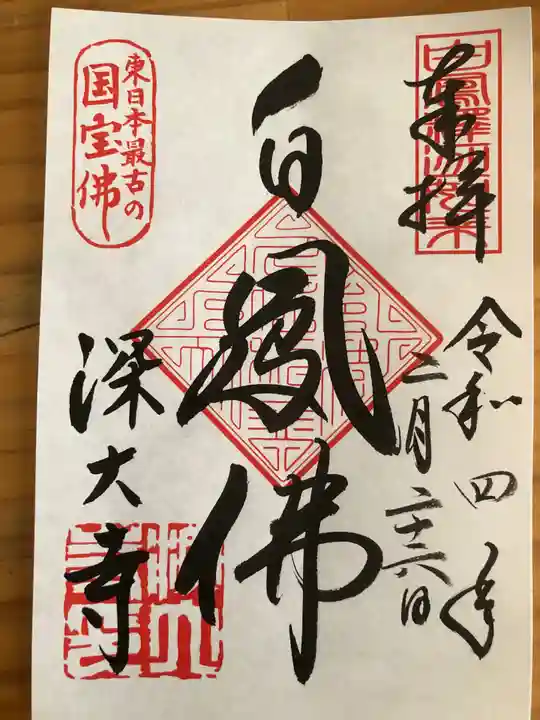 奉拝
令和四年
二月二十六日
白鳳佛
東日本最古の
国宝佛
深大寺